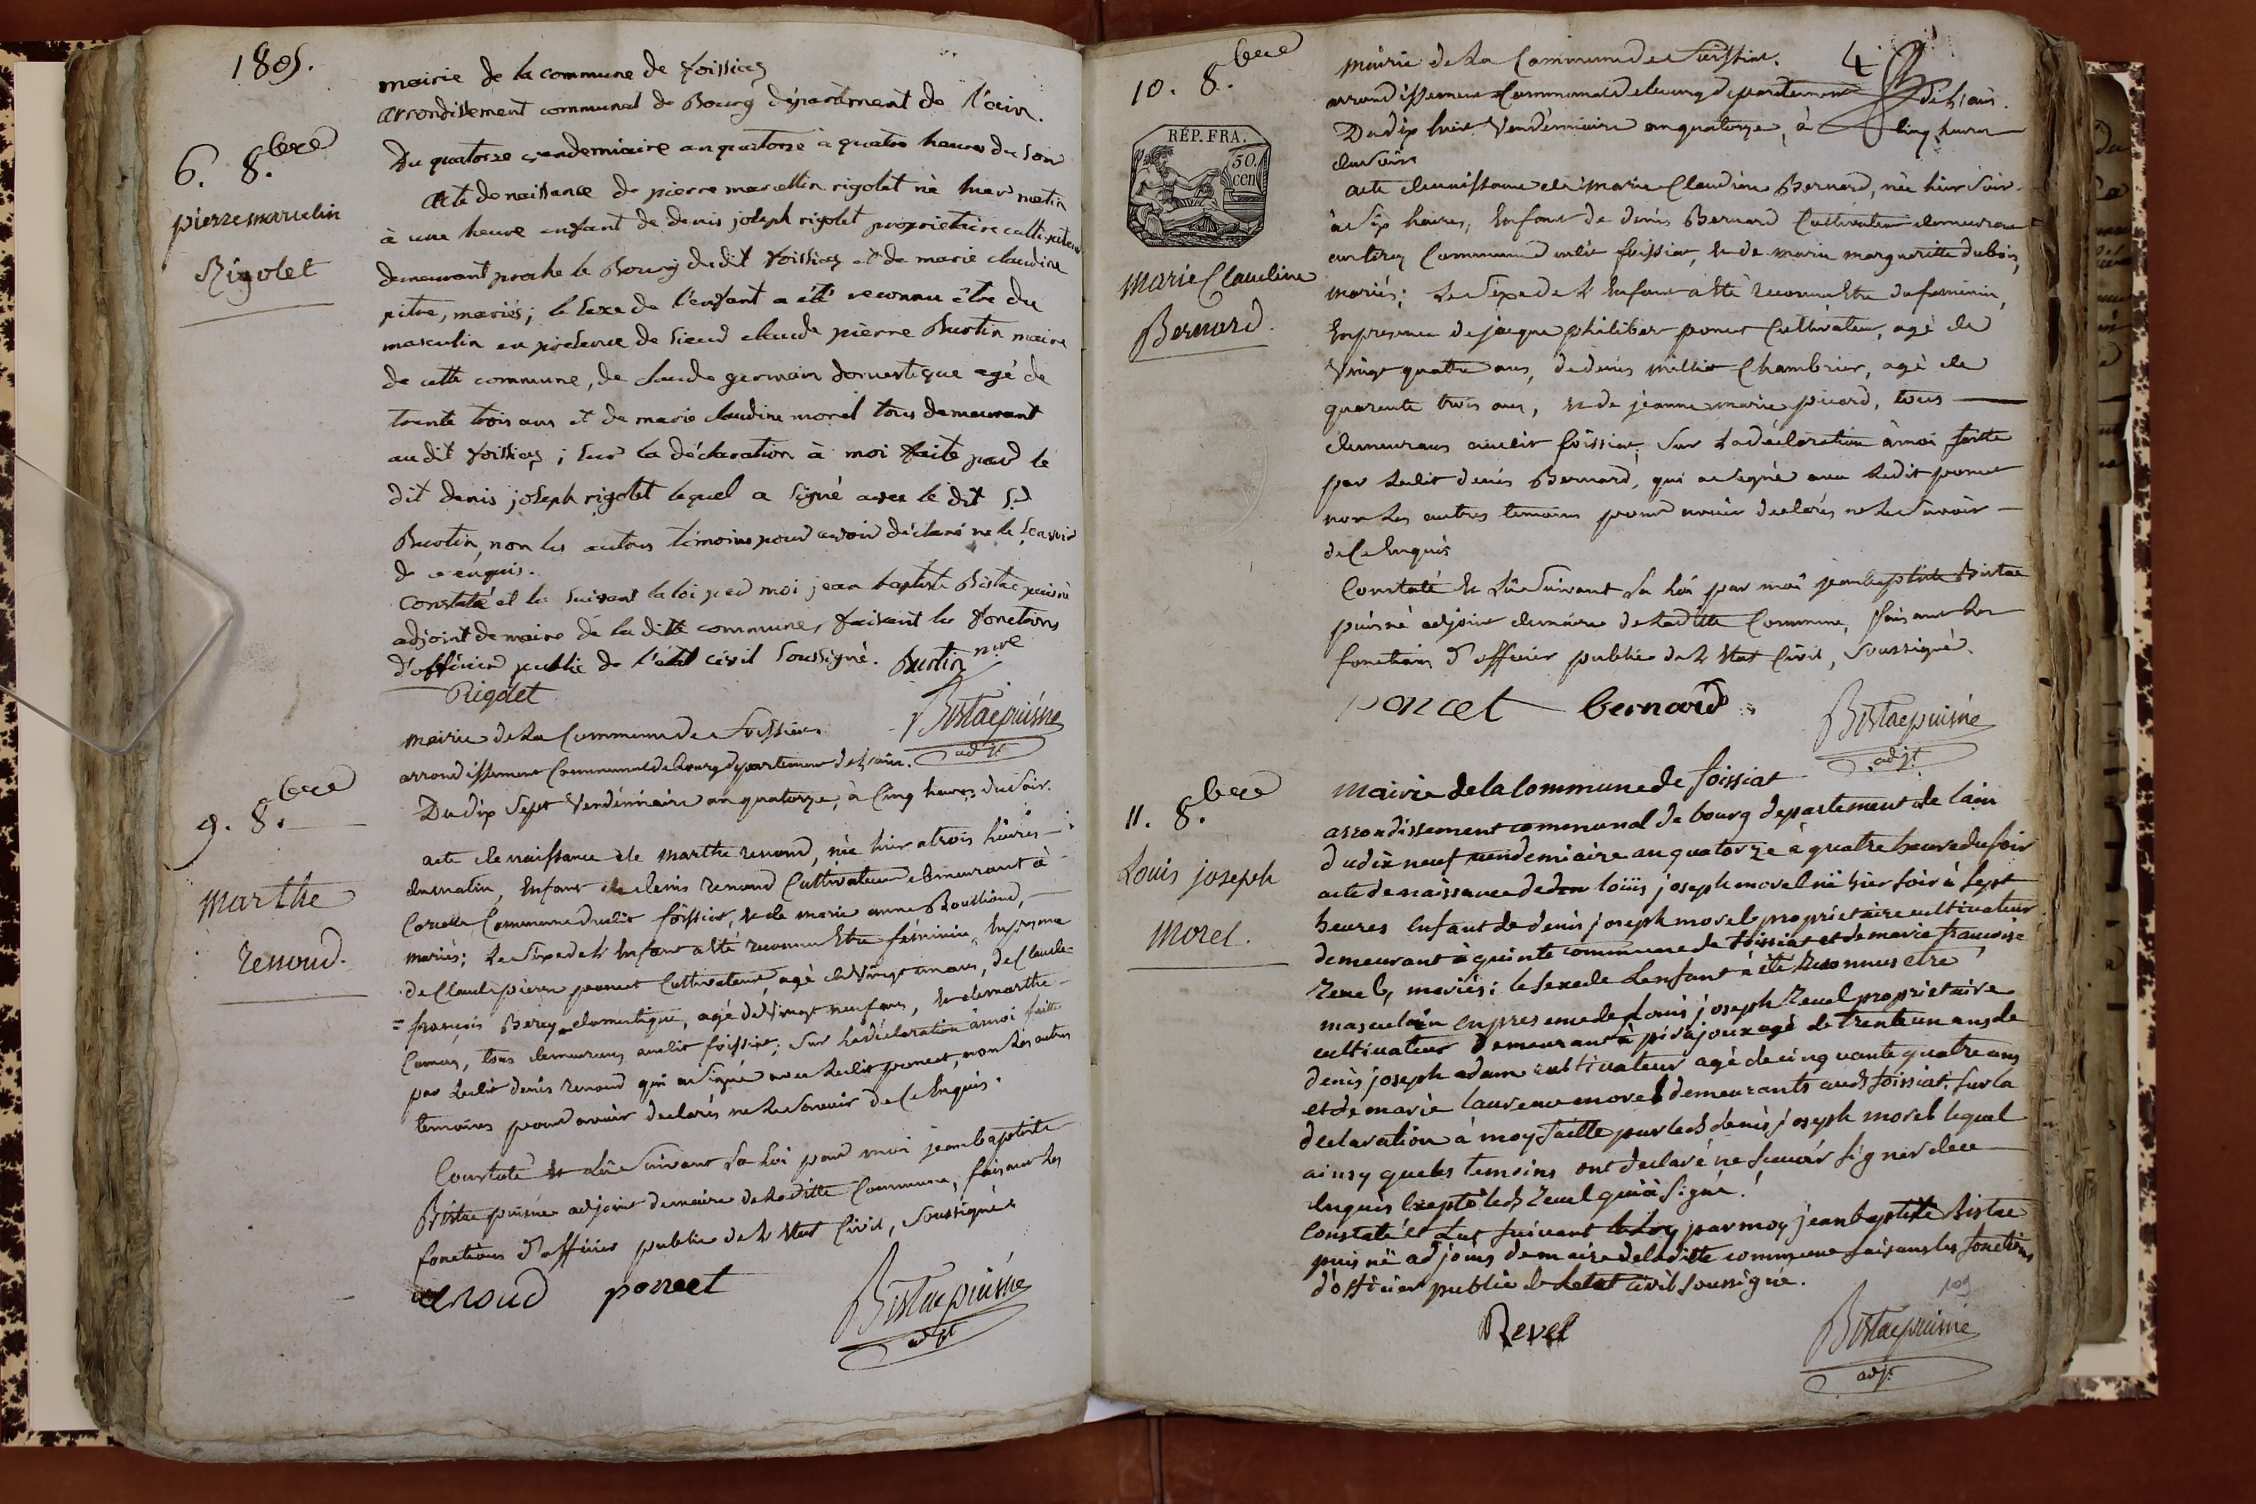 1805.
mairie de la commune de foissiaz
arrondissement communal de Bourg département de l'ain.
6. 8.bere
pierre marcelin
Rigolet
du quatorze vendemiaire an quatorze à quatre heures du soir
acte de naissance de pierre marcellin rigolet né hier matin
à une heure enfant de denis joseph rigolet propriétaire cultivateur
demeurant proche le Bourg du dit foissiaz et de marie claudine
pitre, mariés; le sexe de l'enfant a été reconnu être du
masculin en présence de sieur claude pierre Burtin maire
de cette commune, de claude germain domestique agé de
trente trois ans et de marie claudine morel tous demeurant
au dit foissiaz; sur la déclaration à moi faite par le
dit denis joseph rigolet lequel a signé avec le dit Sr
Burtin, non les autres témoins pour avoir déclaré ne le scavoir
de ce enquis.
Constaté et lu suivant la loi par moi jean baptiste Bistac puisné
adjoint de maire de la ditte commune, faisant les fonctions
d'officier public de l'état civil soussigné. Burtin mre
Rigolet
Bistac puisné
adjt
mairie de La Commune de foissiat
arrondissement Communal de bourg departement de L'ain.
9. 8.bere
Marthe
renoud.
Du dix Sept Vendémiaire an quatorze, à Cinq heures du Soir.
acte de naissance de marthe renoud, née hier a trois heures
du matin, Enfant de denis renoud Cultivateur demeurant à
Commune dudit foissiat, et de marie anne Boullioud,
mariés; Le Sexe de L'Enfant a été reconnu Etre féminin, En presence
de Claude pierre poncet Cultivateur, agé de Vingt un ans, de Claude
= françois Berey domestique, agé de Vingt neuf ans, et de marthe
Camus, tous demeurans audit foissiat; Sur La déclaration à moi faitte
par Ledit denis renoud qui a Signé avec Ledit poncet, non Les autres
temoins pour avoir declarés ne Le Savoir de Ce Enquis.
Constaté et Lu Suivant La Loi par moi jean baptiste
Bistac puisné adjoint de maire de Laditte Commune, faisant Les
fonctions d'officier public de L'Etat Civil, Soussigné.
renoud poncet
Bistac puisné
adjt
4
10. 8.bere
mairie de La Commune de foissiat.
arrondissement Communal de bourg departement de L'ain.
RÉP. FRA.
50.
cen
Marie Claudine
Bernard.
Du dix huit Vendémiaire an quatorze, à Cinq heures
du Soir
acte de naissance de marie Claudine Bernard, née hier Soir
à Six heures, Enfant de denis Bernard Cultivateur demeurant
Commune dudit foissiat, et de marie margueritte dubois,
mariés; Le Sexe de L'Enfant a été reconnu Etre du feminin,
En presence de jacque philibert poncet Cultivateur, agé de
Vingt quatre ans, de denis millier Chambrier, agé de
quarente trois ans, et de jeanne marie picard, tous
demeurans audit foissiat. Sur La déclaration à moi faitte
par Ledit denis Bernard, qui a Signé avec Ledit poncet
non Les autres temoins pour avoir declarés ne Le Savoir
de Ce Enquis
Constaté et Lu Suivant La Loi par moi jean baptiste Bistac
puisné adjoint de maire de Laditte Commune, faisant Les
fonctions d'officier public de L'Etat Civil, Soussigné.
poncet bernard
Bistac puisné
adjt
11. 8.bere
Louis joseph
Morel.
Mairie de la Commune de foissiat
arrondissement communal de bourg departement de lain
du dix neuf vendemiaire an quatorze à quatre heure du soir
acte de naissance de loüis joseph morel né hier soir à sept
heures Enfant de denis joseph morel proprietaire cultivateur
demeurant à quinte commune de foissiat et de marie francoise
revel, mariés; le sexe de Lenfant à été reconnus etre
masculain en presence de Louis joseph revel proprietaire
cultivateur demeurant à pirajoux agé de trente un ans de
denis joseph adam cultivateur agé de cinquante quatre ans
et de marie laurence morel demeurants aud foissiat. sur la
declaration à moy faitte par led denis joseph morel lequel
ainsy que les temoins ont declaré ne scavoir signer de ce
enquis Exepté led revel qui à Signé.
Constaté et Lut suivant la Loy par moy jean baptiste Bistac
puisné adjoins de maire de laditte commune faisans les fonctions
d'officier public de Letat civil soussigné.
Revel
Bistac puisné
adjt